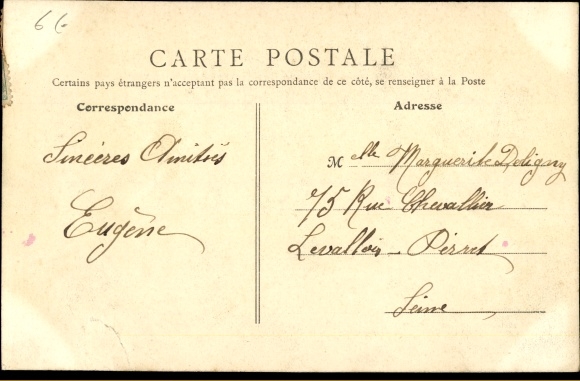 66
CARTE POSTALE
Certains pays étrangers n'acceptant pas la correspondance de ce côté, se renseigner à la Poste
Correspondance
Sincères Amitiés
Eugène
Adresse
Melle Marguerite Deligny
75 Rue Chevallier
Levallois-Perret
Seine